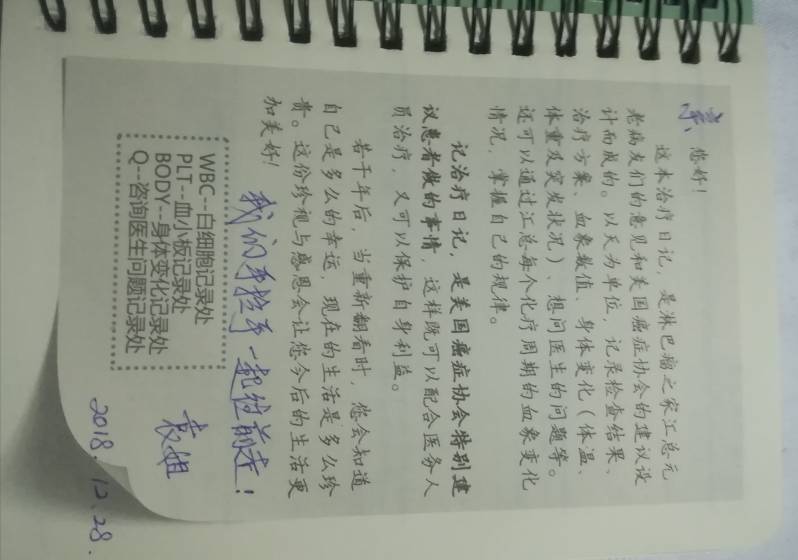 亲 您好！
这本治疗日记，是淋巴瘤之家汇总元
老病友们的意见和美国癌症协会的建议设
计而成的。以天为单位，记录检查结果、
治疗方案、血象数值、身体变化（体温、
体重及突发状况）、想问医生的问题等。
还可以通过汇总每个化疗周期的血象变化
情况，掌握自己的规律。
记治疗日记，是美国癌症协会特别建
议患者做的事情，这样既可以配合医务人
员治疗，又可以保护自身利益。
若干年后，当重新翻看时，您会知道
自己是多么的幸运，现在的生活是多么珍
贵。这份珍视与感恩会让您今后的生活更
加美好！
我们手拉手一起往前走！
WBC--白细胞记录处
PLT--血小板记录处
BODY--身体变化记录处
Q--咨询医生问题记录处
袁姐
2018.12.28.